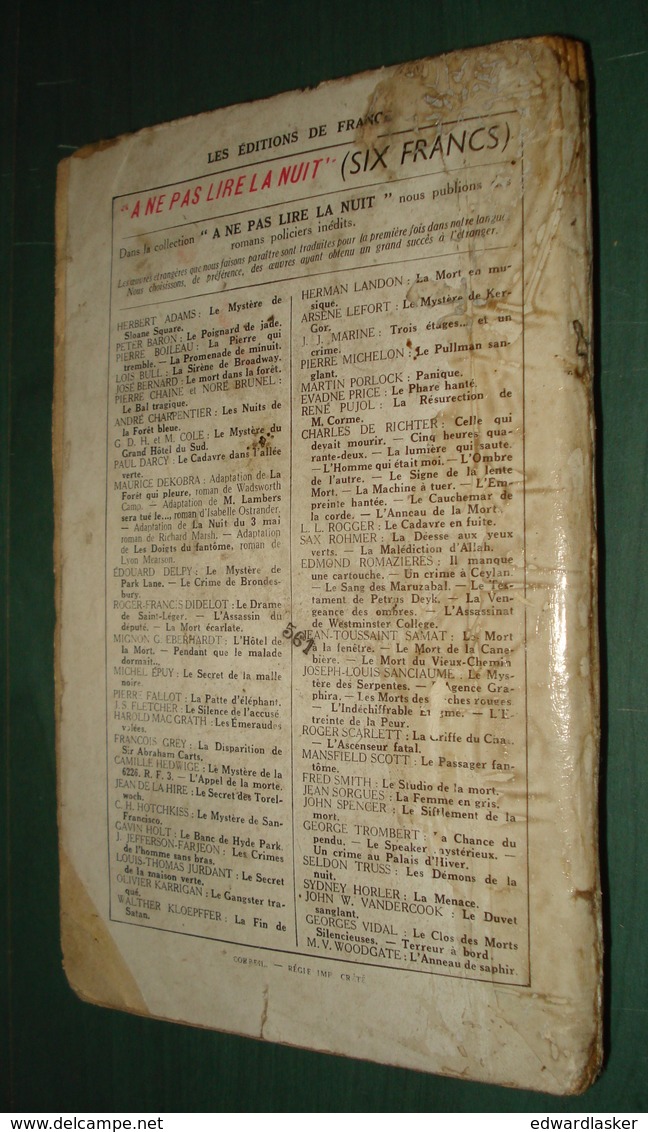 LES ÉDITIONS DE FRANCE
"A NE PAS LIRE LA NUIT" (SIX FRANCS)
Dans la collection " A NE PAS LIRE LA NUIT " nous publions des
romans policiers inédits.
Les œuvres étrangères que nous faisons paraître sont traduites pour la première fois dans notre langue.
Nous choisissons, de préférence, des œuvres ayant obtenu un grand succès à l'étranger.
HERBERT ADAMS : Le Mystère de
Sloane Square.
PETER BARON : Le Poignard de jade.
PIERRE BOILEAU : La Pierre qui
tremble. — La Promenade de minuit.
LOIS BULL : La Sirène de Broadway.
JOSÉ BERNARD : Le mort dans la forêt.
PIERRE CHAINE et NORÉ BRUNEL :
Le Bal tragique.
ANDRÉ CHARPENTIER : Les Nuits de
la Forêt bleue.
G. D. H. et M. COLE : Le Mystère du
Grand Hôtel du Sud.
PAUL DARCY : Le Cadavre dans l'allée
verte.
MAURICE DEKOBRA : Adaptation de La
Forêt qui pleure, roman de Wadsworth
Camp. — Adaptation de M. Lambers
sera tué le..., roman d'Isabelle Ostrander.
— Adaptation de La Nuit du 3 mai
roman de Richard Marsh. — Adaptation
de Les Doigts du fantôme, roman de
Lyon Mearson.
ÉDOUARD DELPY : Le Mystère de
Park Lane. — Le Crime de Brondes-
bury.
ROGER-FRANCIS DIDELOT : Le Drame
de Saint-Léger. — L'Assassin du
député. — La Mort écarlate.
MIGNON G. EBERHARDT : L'Hôtel de
la Mort. — Pendant que le malade
dormait...
MICHEL ÉPUY : Le Secret de la malle
noire.
PIERRE FALLOT : La Patte d'éléphant.
J. S. FLETCHER : Le Silence de l'accusé
HAROLD MAC GRATH : Les Émeraudes
volées.
FRANÇOIS GREY : La Disparition de
Sir Abraham Carts.
CAMILLE HEDWIGE : Le Mystère de la
6226. R. F. 3. — L'Appel de la morte.
JEAN DE LA HIRE : Le Secret des Torel-
woch.
C. H. HOTCHKISS : Le Mystère de San-
Francisco.
GAVIN HOLT : Le Banc de Hyde Park.
J. JEFFERSON-FARJEON : Les Crimes
de l'homme sans bras.
LOUIS-THOMAS JURDANT : Le Secret
de la maison verte.
OLIVIER KARRIGAN : Le Gangster tra-
qué.
WALTHER KLOEPFFER : La Fin de
Satan.
HERMAN LANDON : La Mort en mu-
sique.
ARSÈNE LEFORT : Le Mystère de Ker-
Gor.
J. J. MARINE : Trois étages... et un
crime.
PIERRE MICHELON : Le Pullman san-
glant.
MARTIN PORLOCK : Panique.
EVADNE PRICE : Le Phare hanté.
RENÉ PUJOL : La Résurection de
M. Corme.
CHARLES DE RICHTER : Celle qui
devait mourir. — Cinq heures qua-
rante-deux. — La lumière qui saute.
— L'Homme qui était moi. — L'Ombre
de l'autre. — Le Signe de la lente
Mort. — La Machine à tuer. — L'Em-
preinte hantée. — Le Cauchemar de
la corde. — L'Anneau de la Mort.
L. L. ROGGER : Le Cadavre en fuite.
SAX ROHMER : La Déesse aux yeux
verts. — La Malédiction d'Allah.
EDMOND ROMAZIÈRES : Il manque
une cartouche. — Un crime à Ceylan.
— Le Sang du Maruzabal. — Le Tes-
tament de Petrus Deyk. — La Ven-
geance des ombres. — L'Assassinat
de Westminster College.
JEAN-TOUSSAINT SAMAT : La Mort
à la fenêtre. — Le Mort de la Cane-
bière. — Le Mort du Vieux-Chemin
JOSEPH-LOUIS SANCIAUME : Le Mys-
tère des Serpentes. — Agence Gra-
phira. — Les Morts des ches rouges.
— L'Indéchiffrable — L'É-
treinte de la Peur.
ROGER SCARLETT : La Griffe du Chat.
— L'Ascenseur fatal.
MANSFIELD SCOTT : Le Passager fan-
tôme.
FRED SMITH : Le Studio de la mort.
JEAN SORGUES : La Femme en gris.
JOHN SPENCER : Le Sifflement de la
mort.
GEORGE TROMBERT : La Chance du
pendu. — Le Speaker mystérieux. —
Un crime au Palais d'Hiver.
SELDON TRUSS : Les Démons de la
nuit.
SYDNEY HORLER : La Menace.
JOHN W. VANDERCOOK : Le Duvet
sanglant.
GEORGES VIDAL : Le Clos des Morts
Silencieuses. — Terreur à bord.
M. V. WOODGATE : L'Anneau de saphir.
561
CORBEIL. — RÉGIE IMP. CRÉTÉ
delcampe.net
edwardlasker